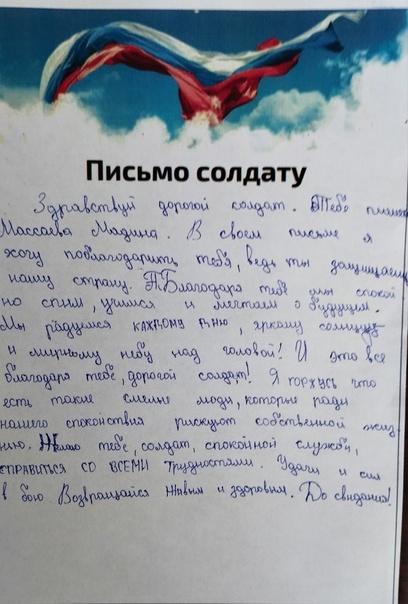 Письмо солдату
Здравствуй дорогой солдат. Тебе пишет
Массаева Мадина. В своем письме я
хочу поблагодарить тебя, ведь ты защищаешь
нашу страну. Благодаря тебе мы спокой
но спим, учимся и мечтаем о будущем.
Мы радуемся каждому дню, яркому солнцу
и мирному небу над головой! И это все
благодаря тебе, дорогой солдат! Я горжусь что
есть такие смелые люди, которые ради
нашего спокойствия рискуют собственной жиз
нию. Желаю тебе, солдат, спокойной службы,
справиться со всеми трудностями. Удачи и сил
в бою Возвращайся живым и здоровым. До свидания!